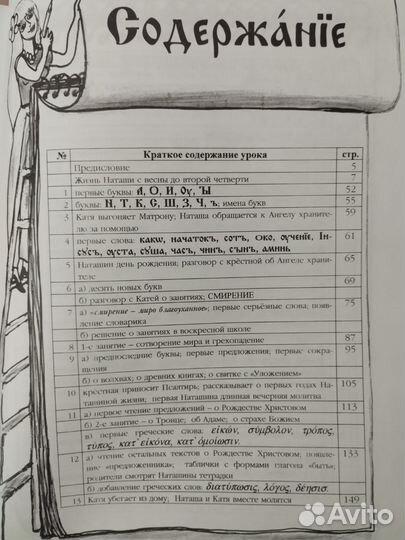 Содержа́нїе
№ Краткое содержание урока стр.
Предисловие 5
Жизнь Наташи с весны до второй четверти 7
1 первые буквы: А, О, И, Оу, Ы 52
2 буквы: N, Т, К, С, Ш, З, Ч, ъ; имена букв 55
3 Катя выгоняет Матрону; Наташа обращается к Ангелу храните- 59
лю за помощью
4 первые слова: какѡ, начатокъ, сотъ, око, оученїе, Iн- 61
сусъ, оуста, суша, часъ, чинъ, сынъ, аминь
5 Наташин день рождения; разговор с крёстной об Ангеле храни- 65
теле
6 а) десять новых букв 69
б) разговор с Катей о занятиях; СМИРЕНИЕ
7 а) «смирение – миро благоуханное»; первые серьёзные слова; появ- 75
ление словарика
б) решение о занятиях в воскресной школе
8 1-е занятие – сотворение мира и грехопадение 87
9 а) предпоследние буквы; первые предложения; первые сокра- 95
щения
б) о волхвах; о древних книгах; о свитке с «Уложением»
10 крестная приносит Псалтирь; рассказывает о первых годах На- 105
ташиной жизни; первая Наташина длинная вечерняя молитва
11 а) первое чтение предложений – о Рождестве Христовом 113
б) 2-е занятие – о Троице; об Адаме; о страхе Божием
в) первые греческие слова: εἰκών, σύμβολον, τρόπος,
τύπος, κατ᾽ εἰκόνα, κατ᾽ ὁμοίωσιν.
12 а) чтение остальных текстов о Рождестве Христовом; появле- 133
ние «предложенника»; таблички с формами глагола «быть»;
родители смотрят Наташины тетрадки
б) добавление греческих слов: διατύπωσις, λόγος, δέησις.
13 Катя убегает из дому; Наташа и Катя вместе молятся 149
Avito